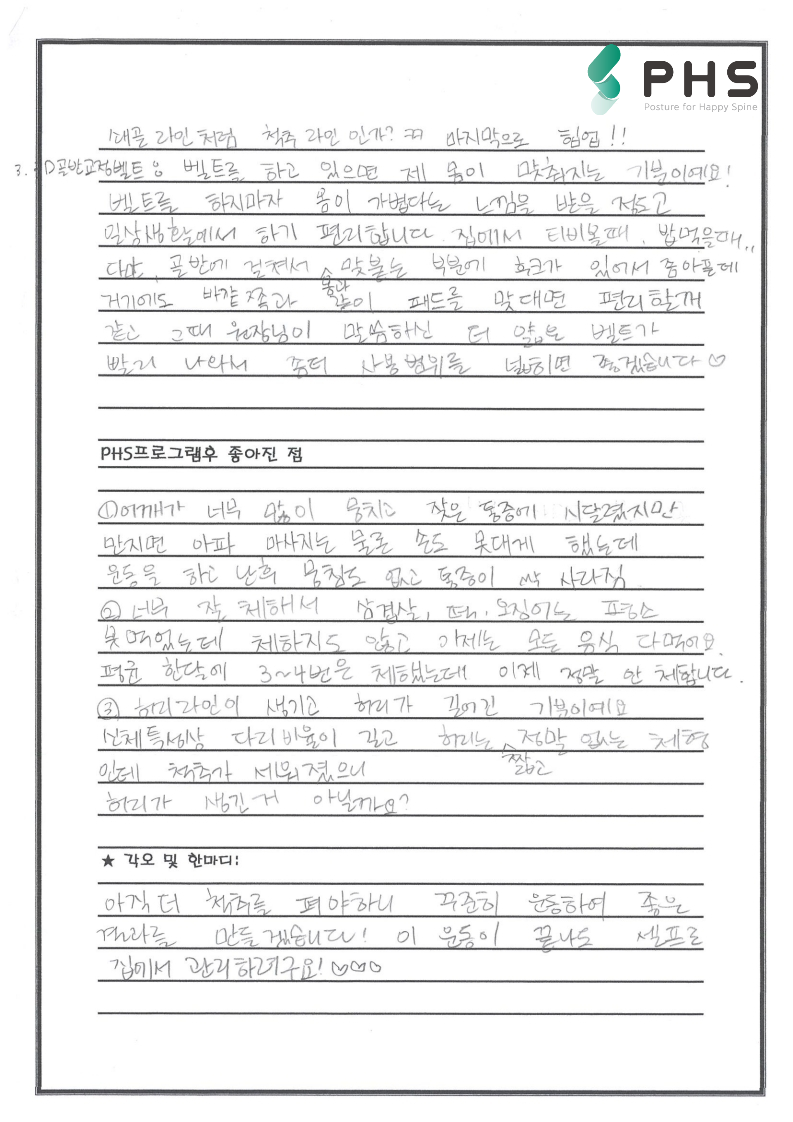 PHS
Posture for Happy Spine
쇄골 라인처럼 척추 라인인가? ㅋㅋ 마지막으로 힙업!!
3. 3D골반교정벨트: 벨트를 하고 있으면 제 몸이 맞춰지는 기분이예요!
벨트를 하자마자 몸이 가볍다는 느낌을 받을 정도고
일상생활에서 하기 편리합니다. 집에서 티비볼때, 밥먹을때..
다만, 골반에 걸쳐서 맞붙는 부분에 효크가 있어서 좀아플데
몸과
거기에도 바깥쪽과 같이 패드를 맞대면 편리할꺼
같고 그때 원장님이 말씀하신 더 얇은 벨트가
빨리 나와서 좀더 사용범위를 넓히면 좋겠습니다♡
PHS프로그램후 좋아진 점
①어깨가 너무 많이 뭉치고 잦은 통증에 시달렸지만
만지면 아파 마사지는 물론 손도 못대게 했는데
운동을 하고 난후 뭉침도 없고 통증이 싹 사라짐
② 너무 잘 체해서 삼겹살, 떡, 오징어는 평소
못먹었는데 체하지도 않고 이제는 모든 음식 다먹어요.
평균 한달에 3~4번은 체했는데 이제 정말 안 체합니다.
③ 허리라인이 생기고 허리가 길어진 기분이예요
신체특성상 다리비율이 길고 허리는 정말 없는 체형
짧고
인데 척추가 세워졌으니
허리가 생긴거 아닐까요?
★ 각오 및 한마디:
아직 더 척추를 펴야하니 꾸준히 운동하여 좋은
결과를 만들겠습니다! 이 운동이 끝나도 셀프로
집에서 관리하려구요!♡♡♡